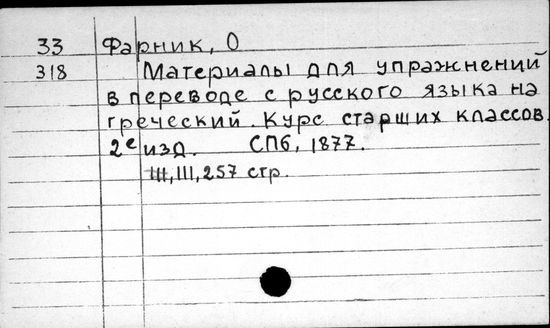 33 Фарник, О
318 Материалы для упражнений
в переводе с русского языка на
греческий. Курс старших классов.
2е изд. СПб, 1877.
III, III, 257 стр.